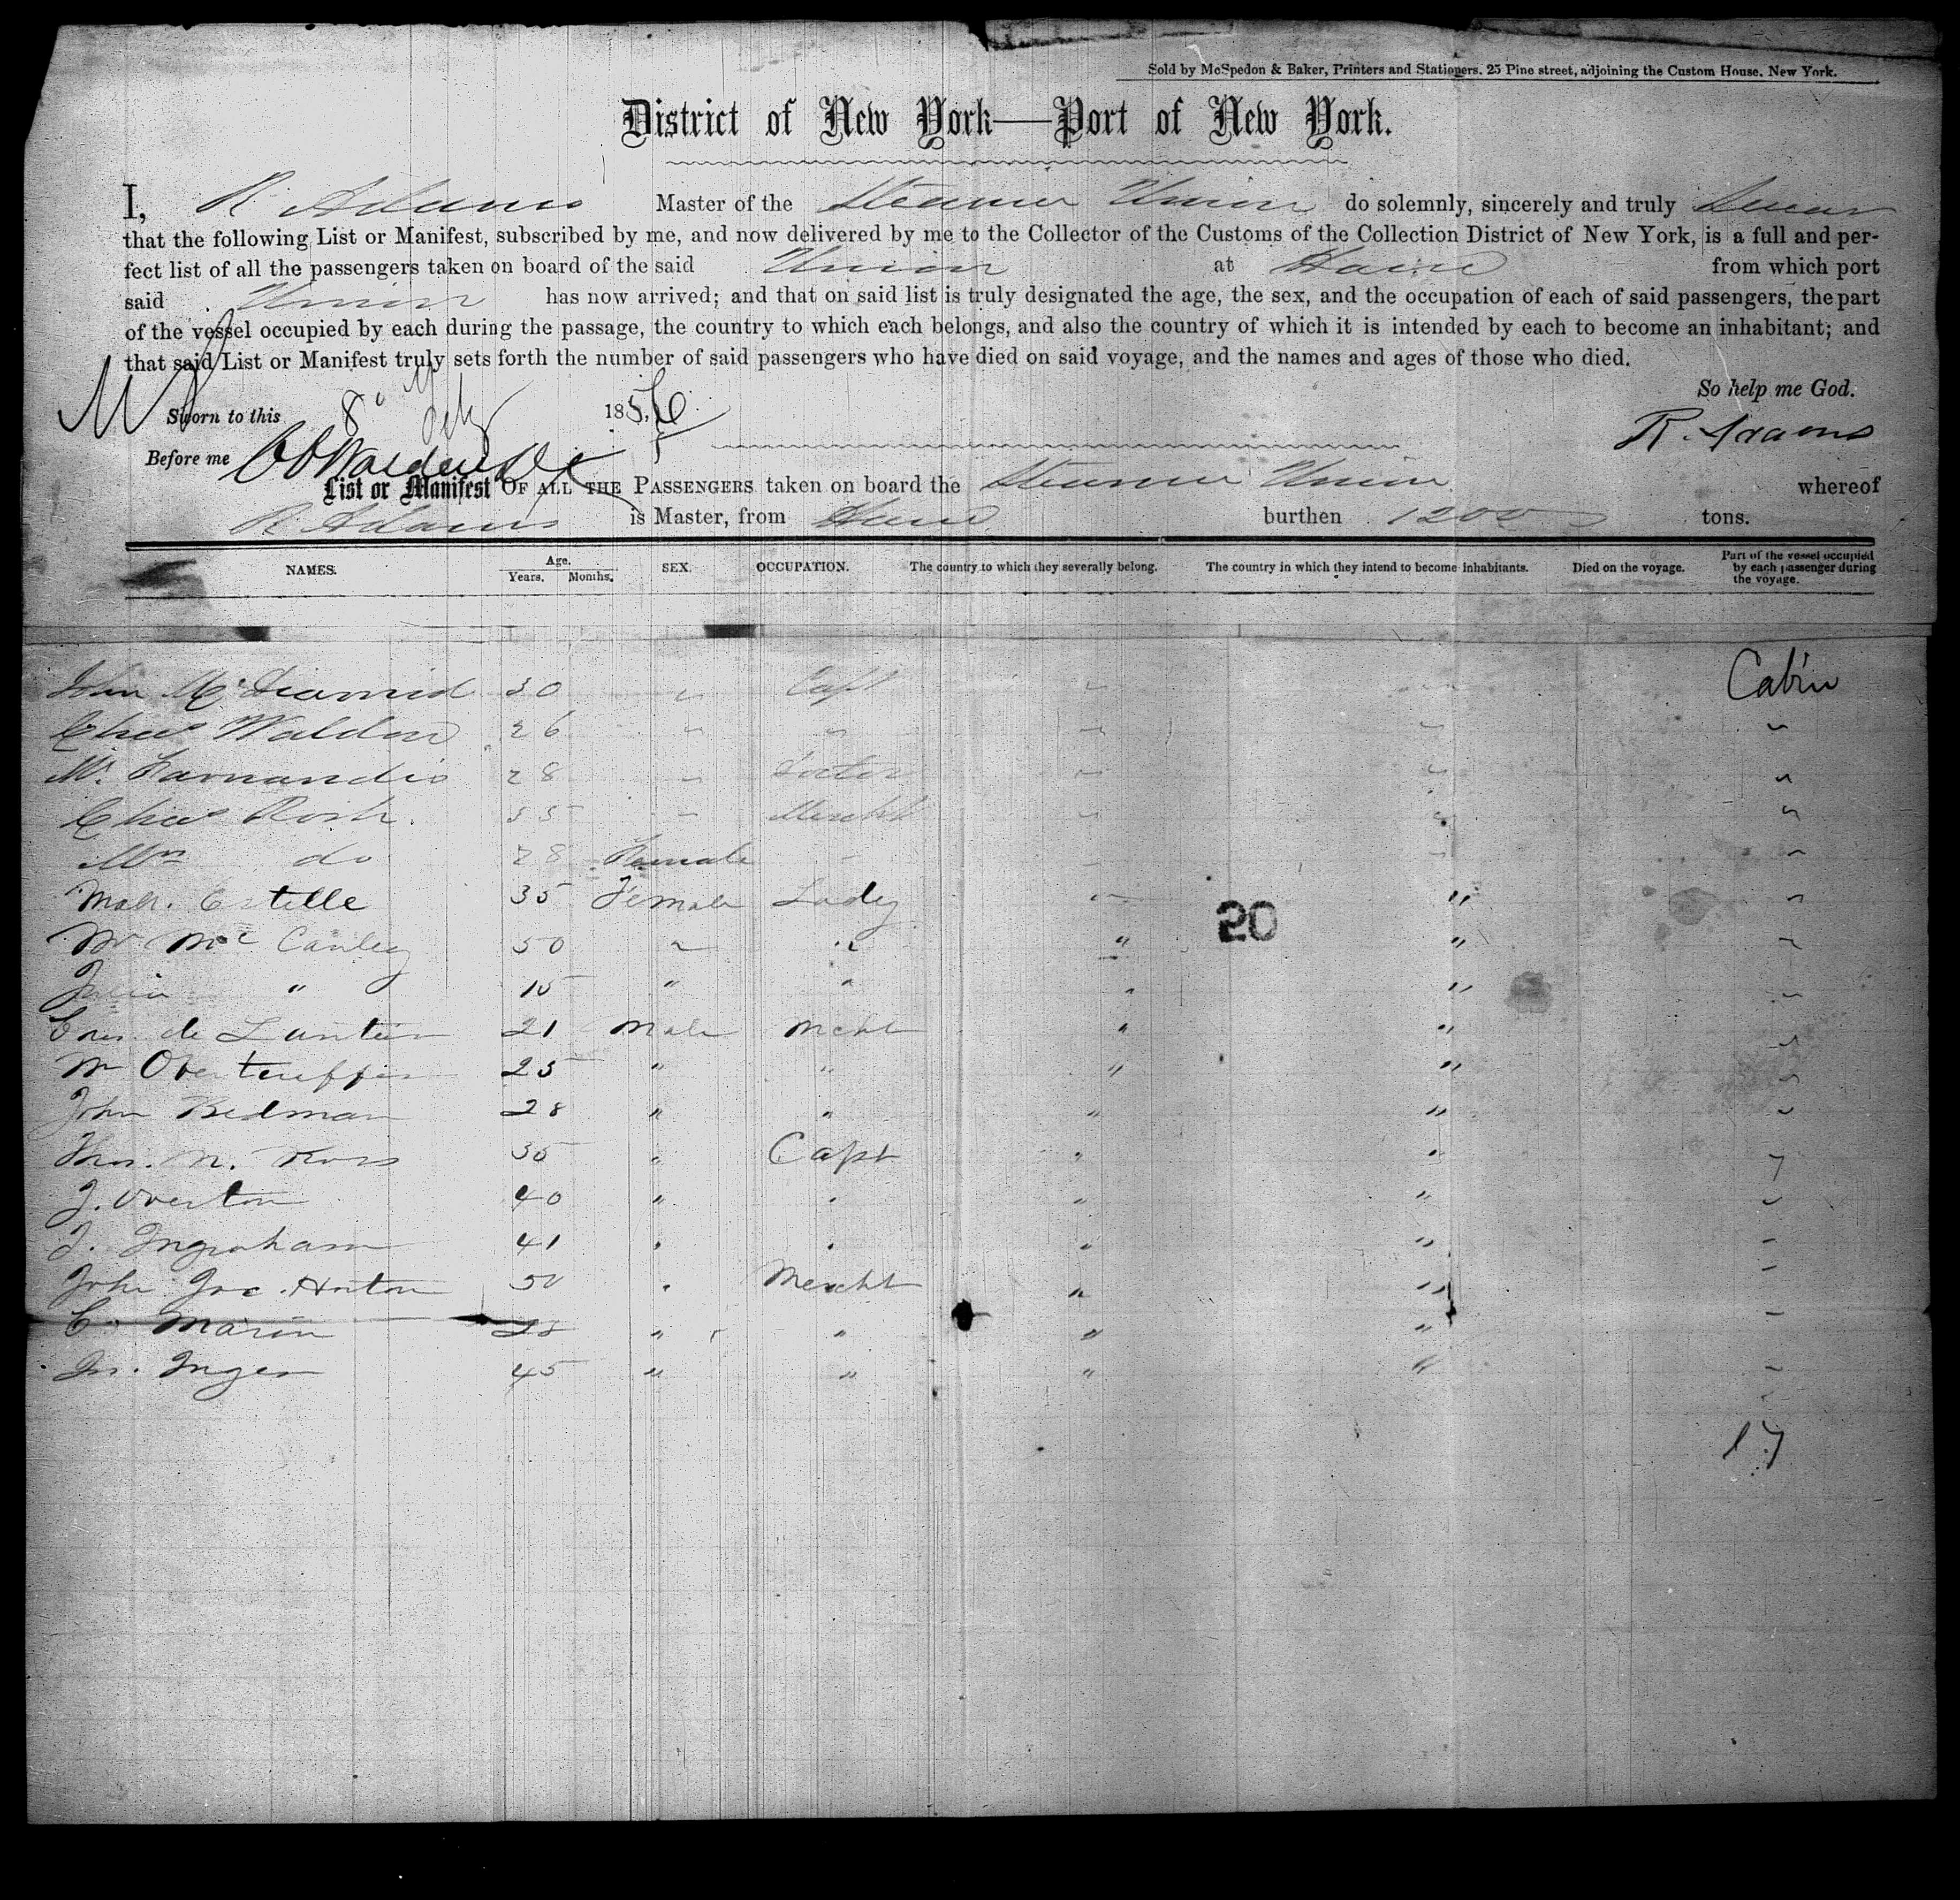 Sold by McSpedon & Baker, Printers and Stationers. 25 Pine street, adjoining the Custom House. New York.
District of New York—Port of New York.
I, R. Adams Master of the Steamer Union do solemnly, sincerely and truly Swear
that the following List or Manifest, subscribed by me, and now delivered by me to the Collector of the Customs of the Collection District of New York, is a full and per-
fect list of all the passengers taken on board of the said Union at Havre from which port
said Union has now arrived; and that on said list is truly designated the age, the sex, and the occupation of each of said passengers, the part
of the vessel occupied by each during the passage, the country to which each belongs, and also the country of which it is intended by each to become an inhabitant; and
that said List or Manifest truly sets forth the number of said passengers who have died on said voyage, and the names and ages of those who died.
So help me God.
Sworn to this 8 1856
R. Adams
Before me
List or Manifest OF ALL THE PASSENGERS taken on board the Steamer Union whereof
R Adams is Master, from Havre burthen 1200 tons.
NAMES. Age. Years. Months. SEX. OCCUPATION. The country to which they severally belong. The country in which they intend to become inhabitants. Died on the voyage. Part of the vessel occupied by each passenger during the voyage.
John 30 " Capt " " Cabin
Chas Waldon 26 " " " " "
Mr Farnandis 28 " Doctor " " "
Chas 35 " Mercht " " "
Mrs do 28 Female " " " "
Mad. Estelle 35 Female Lady " " "
20
Mc Canley 50 " " " " "
Julia " 15 " " " " "
de 21 Male Mcht " " "
25 " " " " "
John Bedman 28 " " " " "
Thos. N. Ross 35 " Capt " " "
J. Overton 40 " " " " "
J. Ingraham 41 " " " " "
John Jac. Horton 50 " Mercht " " "
C. Marin 28 " " " " "
Inger 45 " " " " "
17